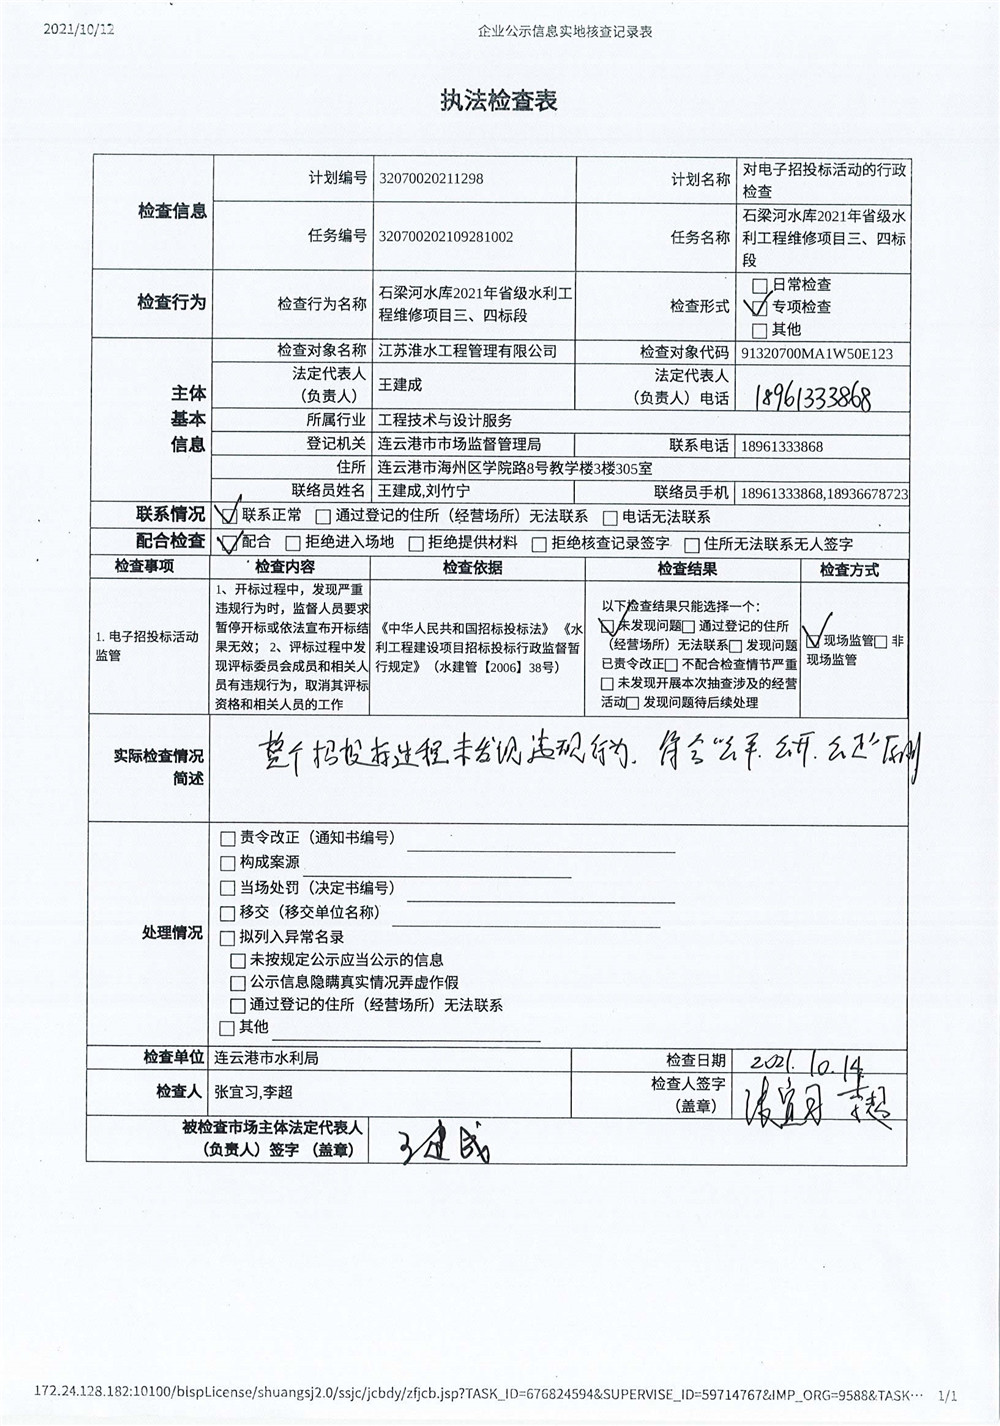 2021/10/12 企业公示信息实地核查记录表
执法检查表
检查信息 计划编号 32070020211298 计划名称 对电子招投标活动的行政
检查
任务编号 320700202109281002 任务名称 石梁河水库2021年省级水
利工程维修项目三、四标
段
检查行为 检查行为名称 石梁河水库2021年省级水利工
程维修项目三、四标段
检查形式 □日常检查
☑专项检查
□其他
主体
基本
信息
检查对象名称 江苏淮水工程管理有限公司 检查对象代码 91320700MA1W50E123
法定代表人
（负责人） 王建成 法定代表人
（负责人）电话 18961333868
所属行业 工程技术与设计服务
登记机关 连云港市市场监督管理局 联系电话 18961333868
住所 连云港市海州区学院路8号教学楼3楼305室
联络员姓名 王建成,刘竹宁 联络员手机 18961333868,18936678723
联系情况 ☑联系正常 □通过登记的住所（经营场所）无法联系 □电话无法联系
配合检查 ☑配合 □拒绝进入场地 □拒绝提供材料 □拒绝核查记录签字 □住所无法联系无人签字
检查事项 检查内容 检查依据 检查结果 检查方式
1. 电子招投标活动
监管
1、开标过程中，发现严重
违规行为时，监督人员要求
暂停开标或依法宣布开标结
果无效； 2、评标过程中发
现评标委员会成员和相关人
员有违规行为，取消其评标
资格和相关人员的工作
《中华人民共和国招标投标法》 《水
利工程建设项目招标投标行政监督暂
行规定》（水建管【2006】38号）
以下检查结果只能选择一个：
☑未发现问题□通过登记的住所
（经营场所）无法联系□发现问题
已责令改正□不配合检查情节严重
□未发现开展本次抽查涉及的经营
活动□发现问题待后续处理
☑现场监管□非
现场监管
实际检查情况
简述
整个招投标过程未发现违规行为，符合“公平、公开、公正”原则
处理情况
□责令改正（通知书编号）
□构成案源
□当场处罚（决定书编号）
□移交（移交单位名称）
□拟列入异常名录
□未按规定公示应当公示的信息
□公示信息隐瞒真实情况弄虚作假
□通过登记的住所（经营场所）无法联系
□其他
检查单位 连云港市水利局 检查日期 2021.10.14
检查人 张宜习,李超 检查人签字
（盖章） 张宜习 李超
被检查市场主体法定代表人
（负责人）签字 （盖章） 王建成
172.24.128.182:10100/bispLicense/shuangsj2.0/ssjc/jcbdy/zfjcb.jsp?TASK_ID=676824594&SUPERVISE_ID=59714767&IMP_ORG=9588&TASK… 1/1